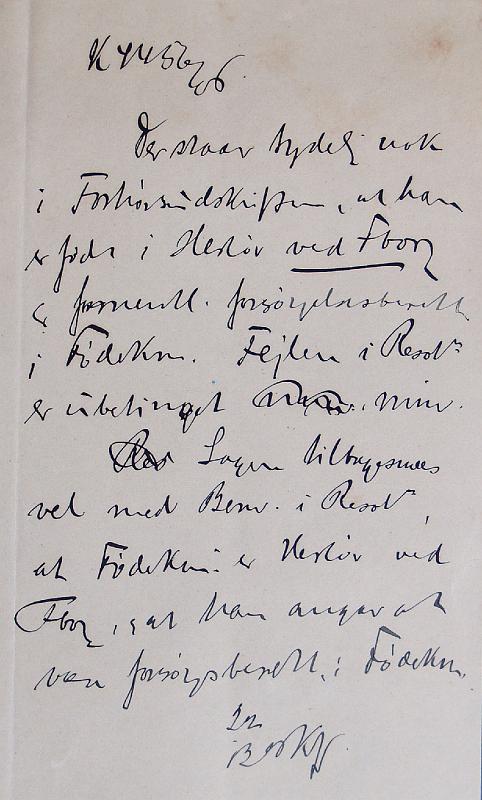 K 4456/06.
Der staar tydelig nok
i Forhørsudskriften, at han
er født i Herløv ved Fborg
& formentl. forsørgelsesberett.
i Fødekm. Fejlen i Resol⁰
er ubetinget min.
Sagen tilbagesendes
vel med Bem. i Resol⁰,
at Fødekm. er Herløv ved
Fborg, & at han angav at
være forsørgsberett. i Fødekm.